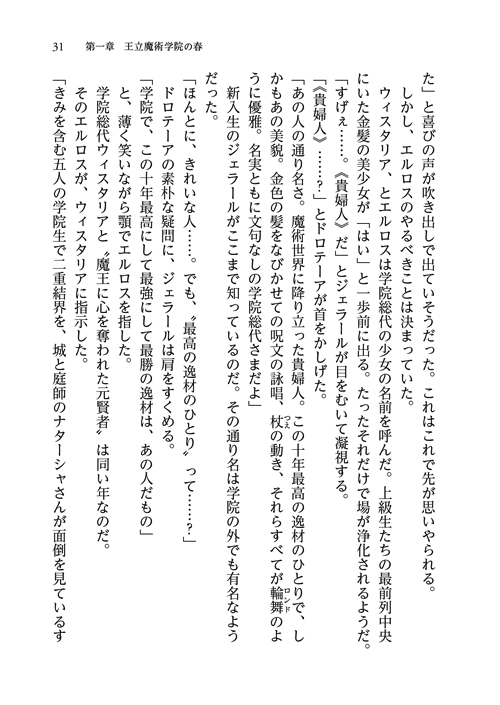 31　第一章　王立魔術学院の春
た」と喜びの声が吹き出しで出ていそうだった。これはこれで先が思いやられる。
　しかし、エルロスのやるべきことは決まっていた。
　ウィスタリア、とエルロスは学院総代の少女の名前を呼んだ。上級生たちの最前列中央
にいた金髪の美少女が「はい」と一歩前に出る。たったそれだけで場が浄化されるようだ。
「すげぇ……。《貴婦人》だ」とジェラールが目をむいて凝視する。
「《貴婦人》……？」とドロテーアが首をかしげた。
「あの人の通り名さ。魔術世界に降り立った貴婦人。この十年最高の逸材のひとりで、し
かもあの美貌。金色の髪をなびかせての呪文の詠唱、杖つえの動き、それらすべてが輪舞ロンドのよ
うに優雅。名実ともに文句なしの学院総代さまだよ」
　新入生のジェラールがここまで知っているのだ。その通り名は学院の外でも有名なよう
だった。
「ほんとに、きれいな人……。でも、〝最高の逸材のひとり〟って……？」
　ドロテーアの素朴な疑問に、ジェラールは肩をすくめる。
「学院で、この十年最高にして最強にして最勝の逸材は、あの人だもの」
　と、薄く笑いながら顎でエルロスを指した。
　学院総代ウィスタリアと〝魔王に心を奪われた元賢者〟は同い年なのだ。
　そのエルロスが、ウィスタリアに指示した。
「きみを含む五人の学院生で二重結界を、城と庭師のナターシャさんが面倒を見ているす